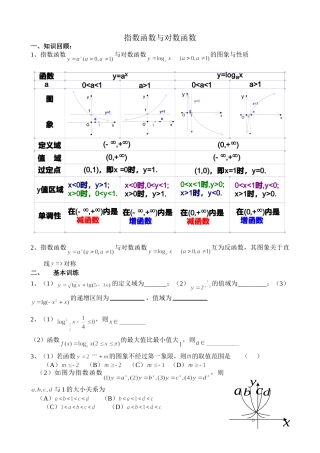 指数函数与对数函数
一、知识回顾:
1、指数函数 y=a^x(a>0,a≠1) 与对数函数 y=log_a x (a>0,a≠1) 的图象与性质
函数 y=a^x y=log_a x
a 0<a<1 a>1 0<a<1 a>1
图
象
定义域 (- ∞,+∞) (0,+∞)
值 域 (0,+∞) (- ∞,+∞)
过定点 (0,1), 即x =0时, y=1. (1,0), 即x=1时, y=0.
y值区域 x<0时, y>1; x<0时,0<y<1; 0<x<1时,y>0; 0<x<1时,y<0;
x>0时, 0<y<1. x>0时,y>1. x>1时, y<0. x>1时, y>0.
单调性 在(- ∞,+∞)内是 在(- ∞,+∞)内是 在(0,+∞)内是 在(0,+∞)内是
减函数 增函数 减函数 增函数
2、指数函数 y=a^x(a>0,a≠1) 与对数函数 y=log_a x (a>0,a≠1) 互为反函数，其图象关于直
线 y=x 对称
二、 基本训练
1、（1） 的定义域为______；（2） 的值域为________；（3）
y=lg(-x²+x) 的递增区间为 ，值域为
2、（1） ，则 x∈________
（2）函数 的最大值比最小值大1，则 a∈________
3、（1）若函数 的图象不经过第一象限，则m的取值范围是 （ ）
（A）m≤-2 （B）m≥-2 （C）m≤-1 （D）m≥-1
（2）如图为指数函数 (1)y=a^x,(2)y=b^x,(3)y=c^x,(4)y=d^x，则
a,b,c,d 与 1 的大小关系为
（A）a<b<1<c<d （B）b<a<1<d<c
（C）1<a<b<c<d （D）a<b<1<d<c
a b y c d
x